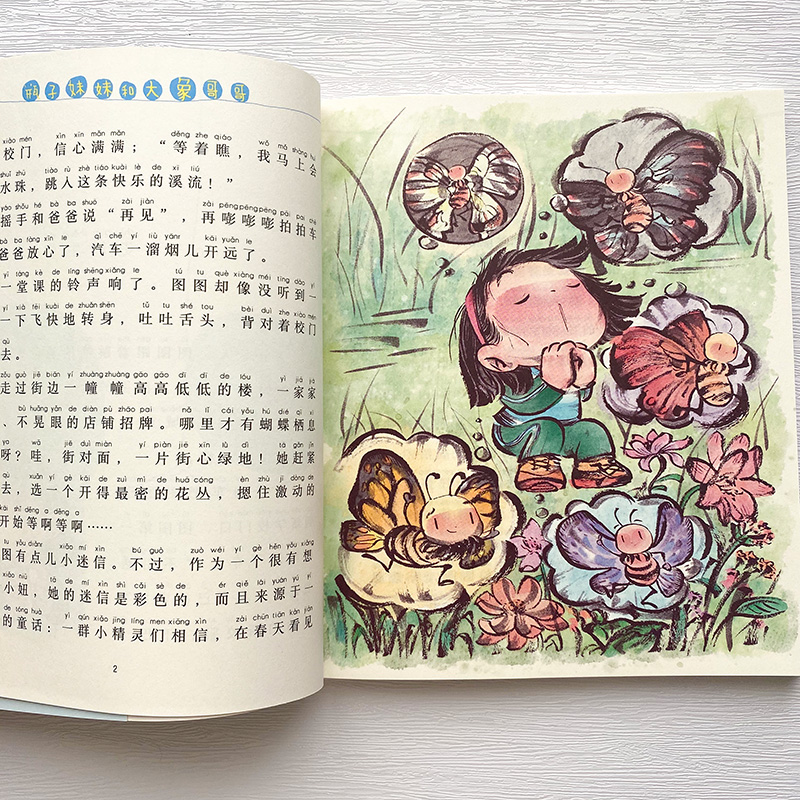 瓶子妹妹和大象哥哥
xiào mén xìn xīn mǎn mǎn děng zhe qiáo wǒ mǎ shàng huì
校门，信心满满；“等着瞧，我马上会
shuǐ zhū tiào rù zhè tiáo kuài lè de xī liú
水珠，跳入这条快乐的溪流！”
yáo shǒu hé bà ba shuō zài jiàn zài pēng pēng pēng pāi pai chē
摇手和爸爸说“再见”，再嘭嘭嘭拍拍车
bà ba fàng xīn le qì chē yí liù yānr kāi yuǎn le
爸爸放心了，汽车一溜烟儿开远了。
yì táng kè de líng shēng xiǎng le tú tu què xiàng méi tīng dào yí
一堂课的铃声响了。图图却像没听到一
yí xià fēi kuài de zhuǎn shēn tǔ tu shé tou bèi duì zhe xiào mén
一下飞快地转身，吐吐舌头，背对着校门
qù
去。
zǒu guò jiē biān yí zhuàng zhuàng gāo gāo dī dī de lóu yì jiā jiā
走过街边一幢幢高高低低的楼，一家家
bù huǎng yǎn de diàn pù zhāo pai nǎ lǐ cái yǒu hú dié qī xī
、不晃眼的店铺招牌。哪里才有蝴蝶栖息
ya wā jiē duì miàn yí piàn jiē xīn lǜ dì tā gǎn jǐn
呀？哇，街对面，一片街心绿地！她赶紧
qù xuǎn yí gè kāi de zuì mì de huā cóng èn zhù jī dòng de
去，选一个开得最密的花丛，摁住激动的
kāi shǐ děng a děng a
开始等啊等啊……
tú yǒu diǎnr xiǎo mí xìn bú guò zuò wéi yí gè hěn yǒu xiǎng
图有点儿小迷信。不过，作为一个很有想
xiǎo niū tā de mí xìn shì cǎi sè de ér qiě lái yuán yú yí
小妞，她的迷信是彩色的，而且来源于一
de tóng huà yì qún xiǎo jīng líng men xiāng xìn zài chūn tiān kàn jiàn
的童话：一群小精灵们相信，在春天看见
2